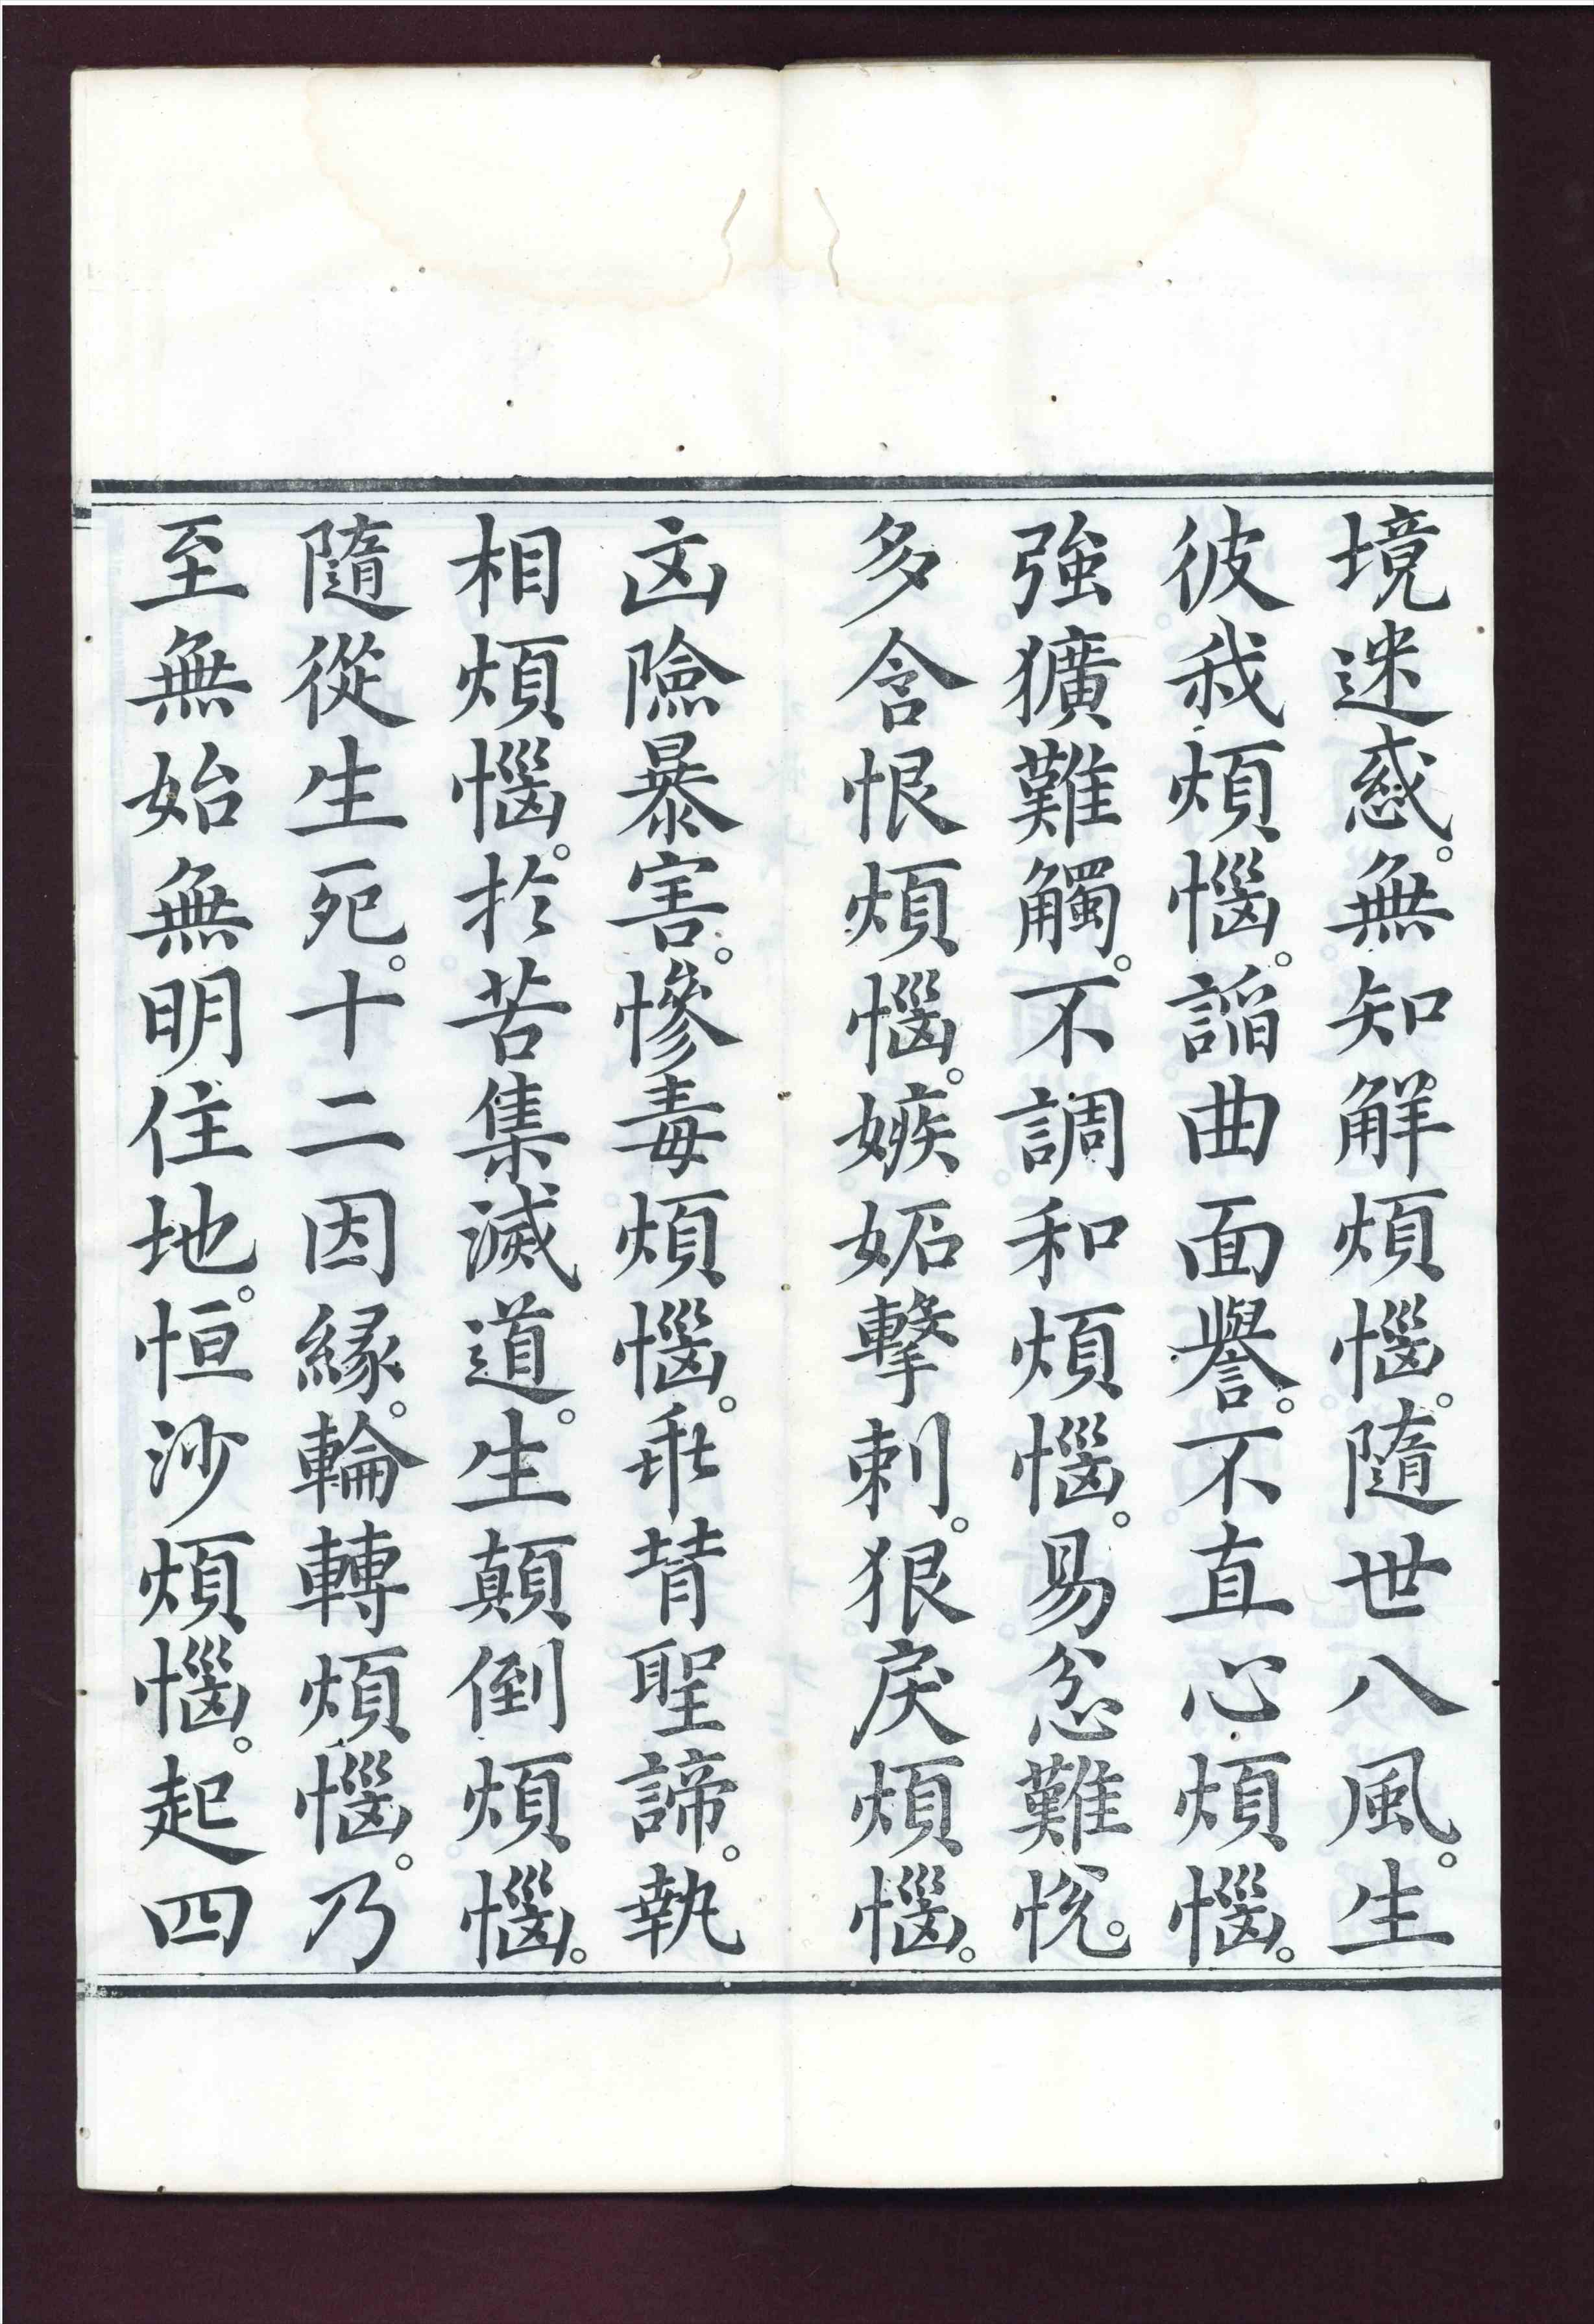 境迷惑。無知解煩惱。隨世八風。生
彼我煩惱。謟曲面譽。不直心煩惱。
強獷難觸。不調和煩惱。易忿難恱。
多含恨煩惱。嫉妬擊刺。狠戾煩惱。
凶險暴害。慘毒煩惱。乖背聖諦。執
相煩惱。於苦集滅道。生顛倒煩惱。
隨從生死。十二因緣。輪轉煩惱。乃
至無始無明住地。恒沙煩惱。起四